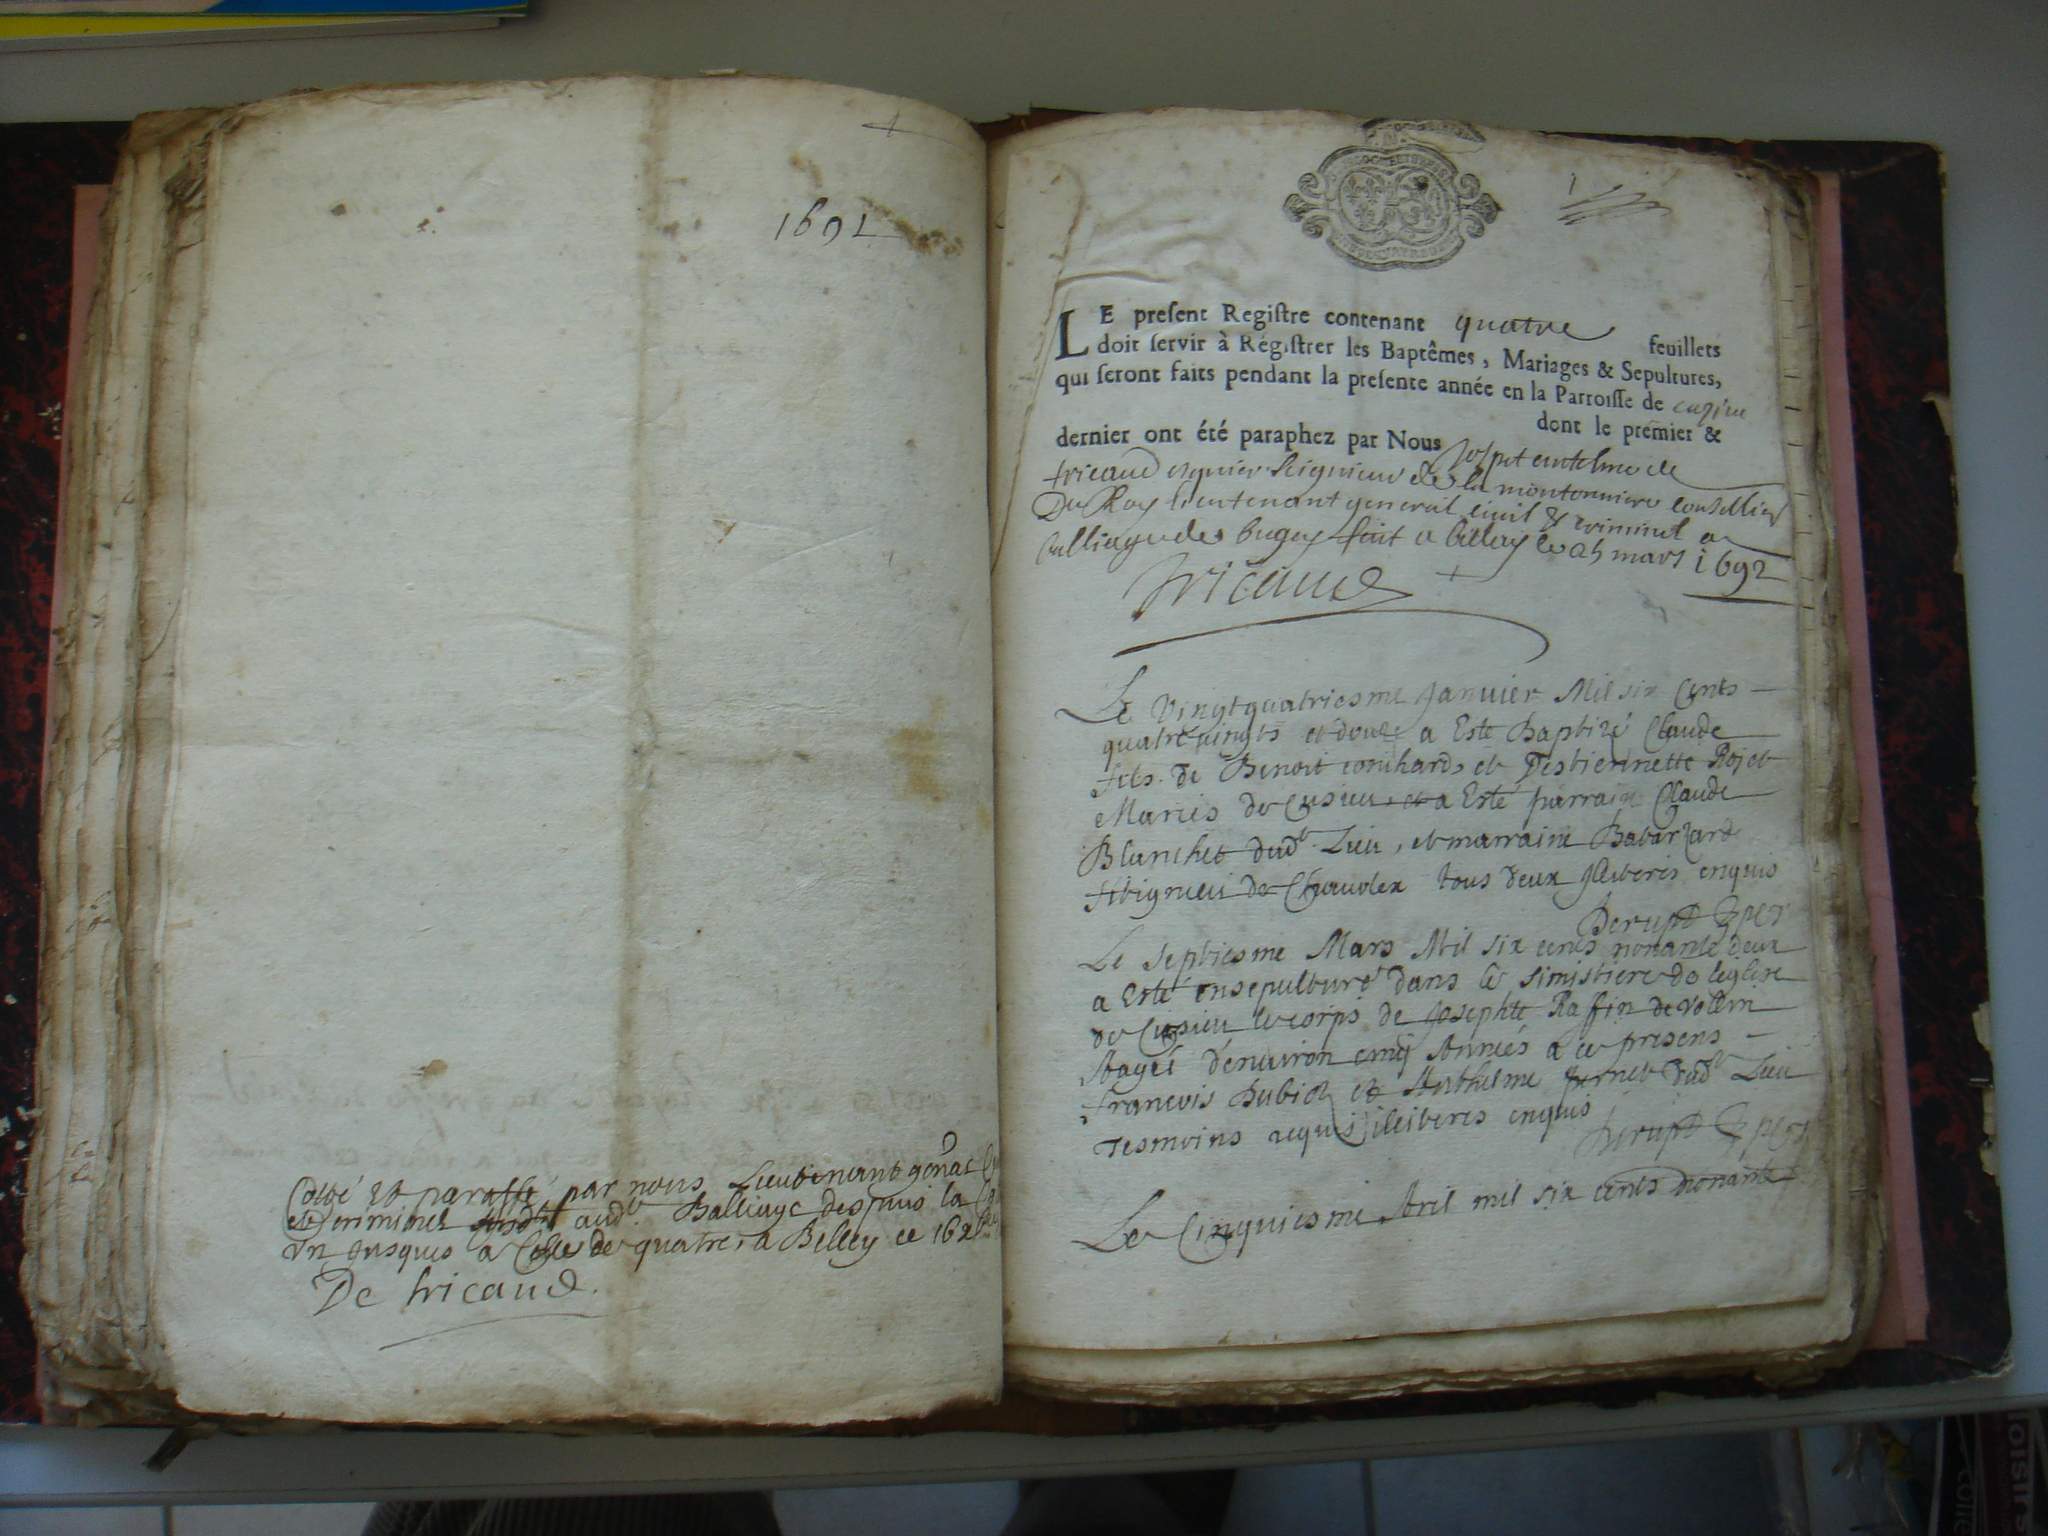 1691
Cotté et paraffé par nous Lieutenant gñal
et criminel audt. Balliage despuis la
un jusques a Celle de quatre, a Belley ce 169
De Tricaud.
LE present Registre contenant quatre feuillets
doit servir à Régistrer les Baptêmes, Mariages & Sepultures,
qui seront faits pendant la presente année en la Parroisse de
dont le premier &
dernier ont été paraphez par Nous Joseph entelme de
tricaud esquier seignieur de la montonniere conseillier
Du Roy lieutenant general civil & criminel au
balliage de bugey fait a belley le 25 mars 1692
Tricaud
Le Vingtquatriesme Janvier Mil six Cents
quatre vingts et douze a Esté Baptizé Claude
fils de Benoit et Testiennette Rojet
Mariés de Cusieu, et a Esté parrain Claude
Blanchet dudt. Lieu, et marraine
de tous deux Illiterés enquis
Derupt
Le septiesme Mars Mil six cents nonante deux
a Esté ensepulturé dans le simistiere de leglise
de Cusieu le corps de Josephte Raffin de vollin
Aagée d'environ cinq Années a ce presens
francois Dubiez et Anthelme dudt Lieu
Tesmoins requis illiteres enquis
Derupt
Le Cinquiesme Avril mil six cents nonante